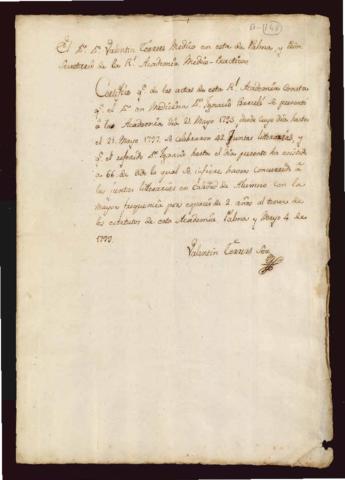 El Dr. Dn. Valentin Torres Medico en esta de Palma, y
Secretario de la Rl. Academia Medico-Practica
Certifico qe. de las actas de esta Rl. Academia consta
qe. el Dr. en Medicina Dn. Ignacio se presentó
á la Academia dia 21 Mayo 1795, desde cuyo dia hasta
el 21 Mayo 1797. se celebraron 42 Juntas literarias, y
qe. el referido Dr. Ignacio hasta el dia presente ha asistido
á 66 de lo qual se infiere haver concurrido á
las juntas literarias en calidad de Alumno con la
mayor frequencia por espacio de 2 años al tenor de
los estatutos de esta Academia Palma y Mayo 4 de
1799.
Valentin Torres Srio